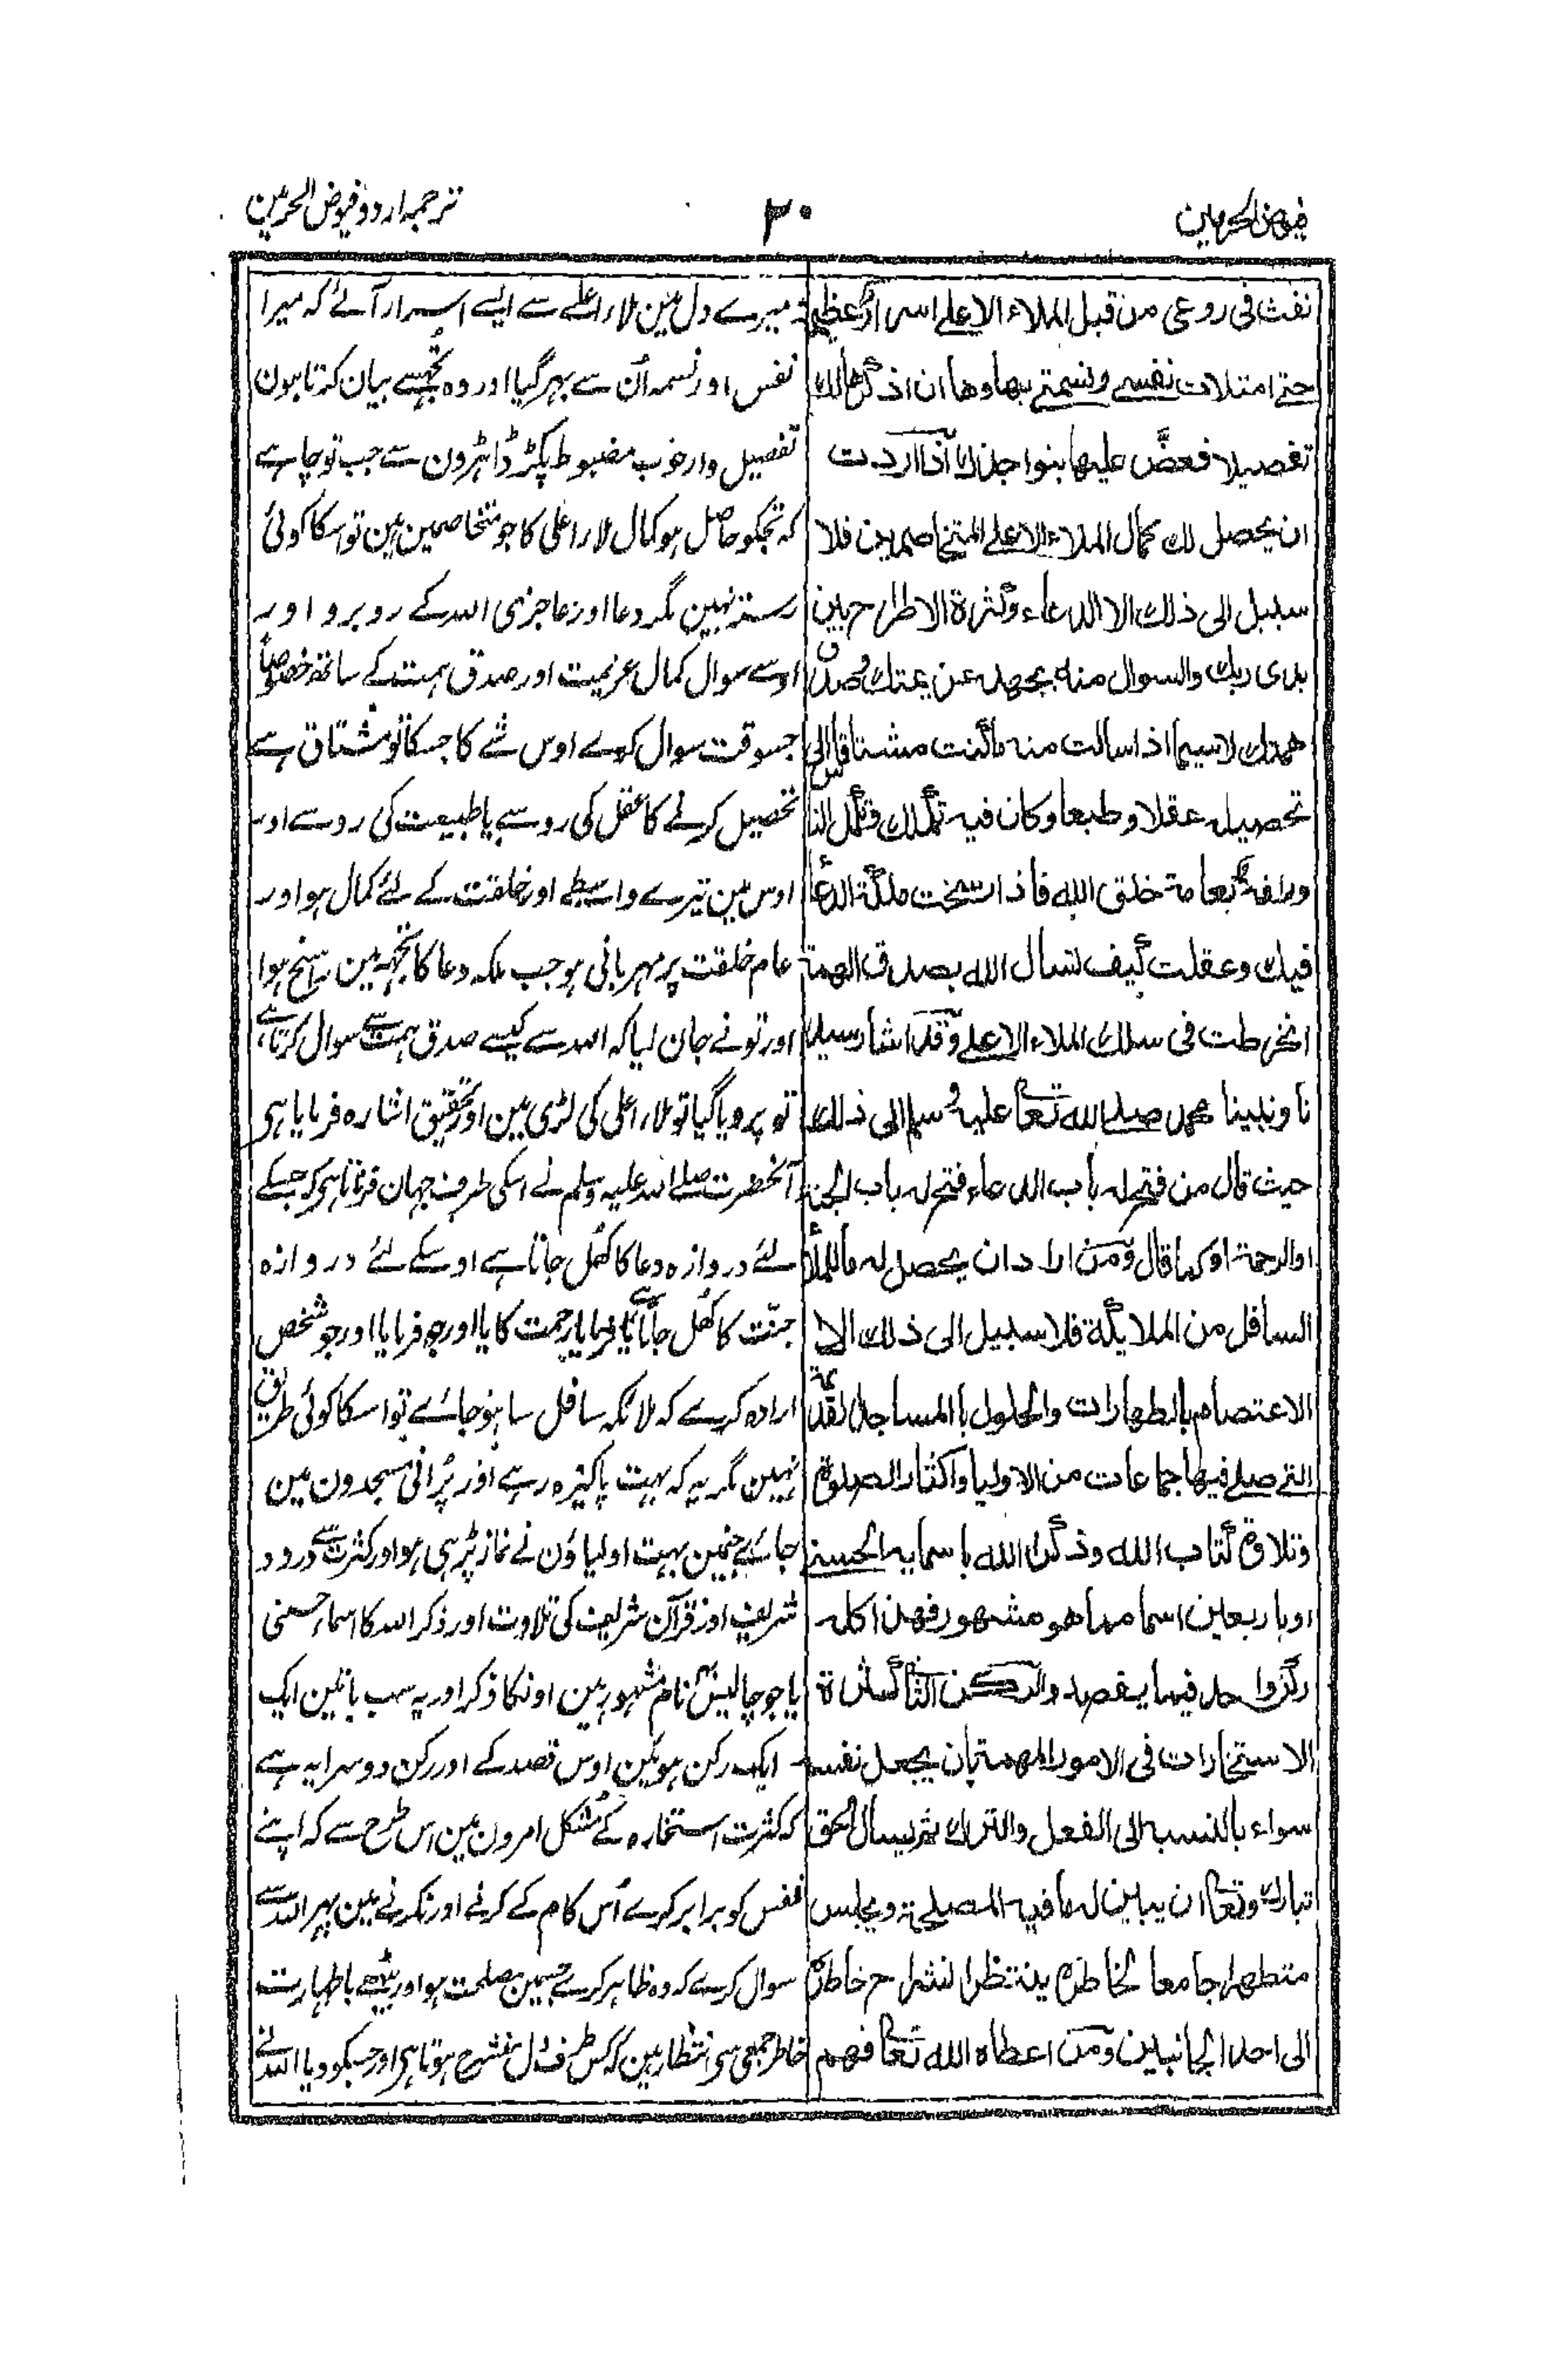 فیوض الحرمین
۳۰
ترجمہ اردو فیوض الحرمین
نفث فی روعی من قبل الملاء الاعلے اسرار عظیمة
حتے امتلات نفسے ونسمتے بها وها ان اذکرها لك
تفصیلا فعضّ علیها بنواجذك اذا اردت
ان یحصل لك کمال الملاء الاعلے المتخاصمین فلا
سبیل الی ذلك الا الدعاء وکثرة الاطراح بین
یدی ربك والسوال منه بجهد عزیمتك وصدق
همتك لاسیما اذا سالت منه ما کنت مشتاقا الی
تحصیله عقلا وطبعا وکان فیه تکملك وتکمل الناس
ورافة بعامة خلق الله فاذا رسخت ملکة الدعاء
فیك وعقلت کیف تسال الله بصدق الهمة
انخرطت فی سلك الملاء الاعلے وقد اشار سید
نا ونبینا محمد صلے الله تعا علیه وسلم الی ذلك
حیث قال من فتح له باب الدعاء فتح له باب الجنة
اوالرحمة اوکما قال ومن اراد ان یحصل له ما للملأ
السافل من الملایکة فلا سبیل الی ذلك الا
الاعتصام بالطهارات والحلول بالمساجد القدیمة
التے صلے فیها جماعات من الاولیا واکثار الصلوة
وتلاوة کتاب الله وذکر الله باسمایه الحسنے
او باربعین اسما مما هو مشهور فهذا کله
رکن واحد فیما یقصد والرکن الثانی کثرة
الاستخارات فی الامور المهمة بان یجعل نفسه
سواء بالنسبه الی الفعل والترك ثم یسأل الحق
تبارك وتعا ان یبین له ما فیه المصلحة ویجلس
متطهرا جامعا لخاطره ینتظر انشراح خاطره
الی احد الجانبین ومن اعطاه الله تعا فهم
میرے دل مین ملاء اعلے سے ایسے اسرار آئے کہ میرا
نفس اور نسمہ اُن سے بہر گیا اور وہ تجہسے بیان کرتا ہون
تفصیل وار خوب مضبوط پکڑ ڈاڑہون سے جب تو چاہے
کہ تجکو حاصل ہو کمال ملاء اعلی کا جو متخاصمین ہین تو اسکا کوئی
رستہ نہین مگر دعا اور عاجزی اللہ کے روبرو اور
اوسے سوال کمال عزیمت اور صدق ہمت کے ساتھ خصوصاً
جسوقت سوال کرے اوس شے کا جسکا تو مشتاق ہے
تحصیل کرنے کا عقل کی رو سے یا طبیعت کی رو سے اور
اوس مین تیرے واسطے اور خلقت کے لئے کمال ہو اور
عام خلقت پر مہربانی ہو جب ملکہ دعا کا تجہہ مین راسخ ہوا
اور تو نے جان لیا کہ اللہ سے کیسے صدق ہمت سے سوال کرتا ہے
تو پرو یا گیا تو ملاء اعلی کی لڑی مین اور تحقیق اشارہ فرمایا ہی
آنحضرت صلے اللہ علیہ وسلم نے اسکی طرف جہان فرماتا ہی کہ جسکے
لئے دروازہ دعا کا کھل جاتا ہے اوسکے لئے دروازہ
جنّت کا کھل جاتا ہے یا فرمایا رحمت کا یا اور جو فرمایا اور جو شخص
ارادہ کرے کہ ملائکہ سافل سا ہو جائے تو اسکا کوئی طریق
نہین مگر یہ کہ بہت پاکیزہ رہے اور پُرانی مسجدون مین
جائے جنمین بہت اولیاؤن نے نماز پڑہی ہو اور کثرت سے درود
شریف اور قرآن شریف کی تلاوت اور ذکر اللہ کا اسماء حسنی
یا جو چالیس نام مشہور ہین اونکا ذکر اور یہ سب باتین ایک
ایک رکن ہوئین اوس قصد کے اور رکن دوسرا یہ ہے
کہ کثرت استخارہ کے مشکل امرون مین اس طرح سے کہ اپنے
نفس کو برابر کرے اُس کام کے کرنے اور نکرنے مین پہر اللہ سے
سوال کرے کہ وہ ظاہر کرے جسمین مصلحت ہو اور بیٹھے باطہارت
خاطر جمعی سی انتظار مین کہ کس طرف دل منشرح ہوتا ہی اور جسکو دیا اللہ نے